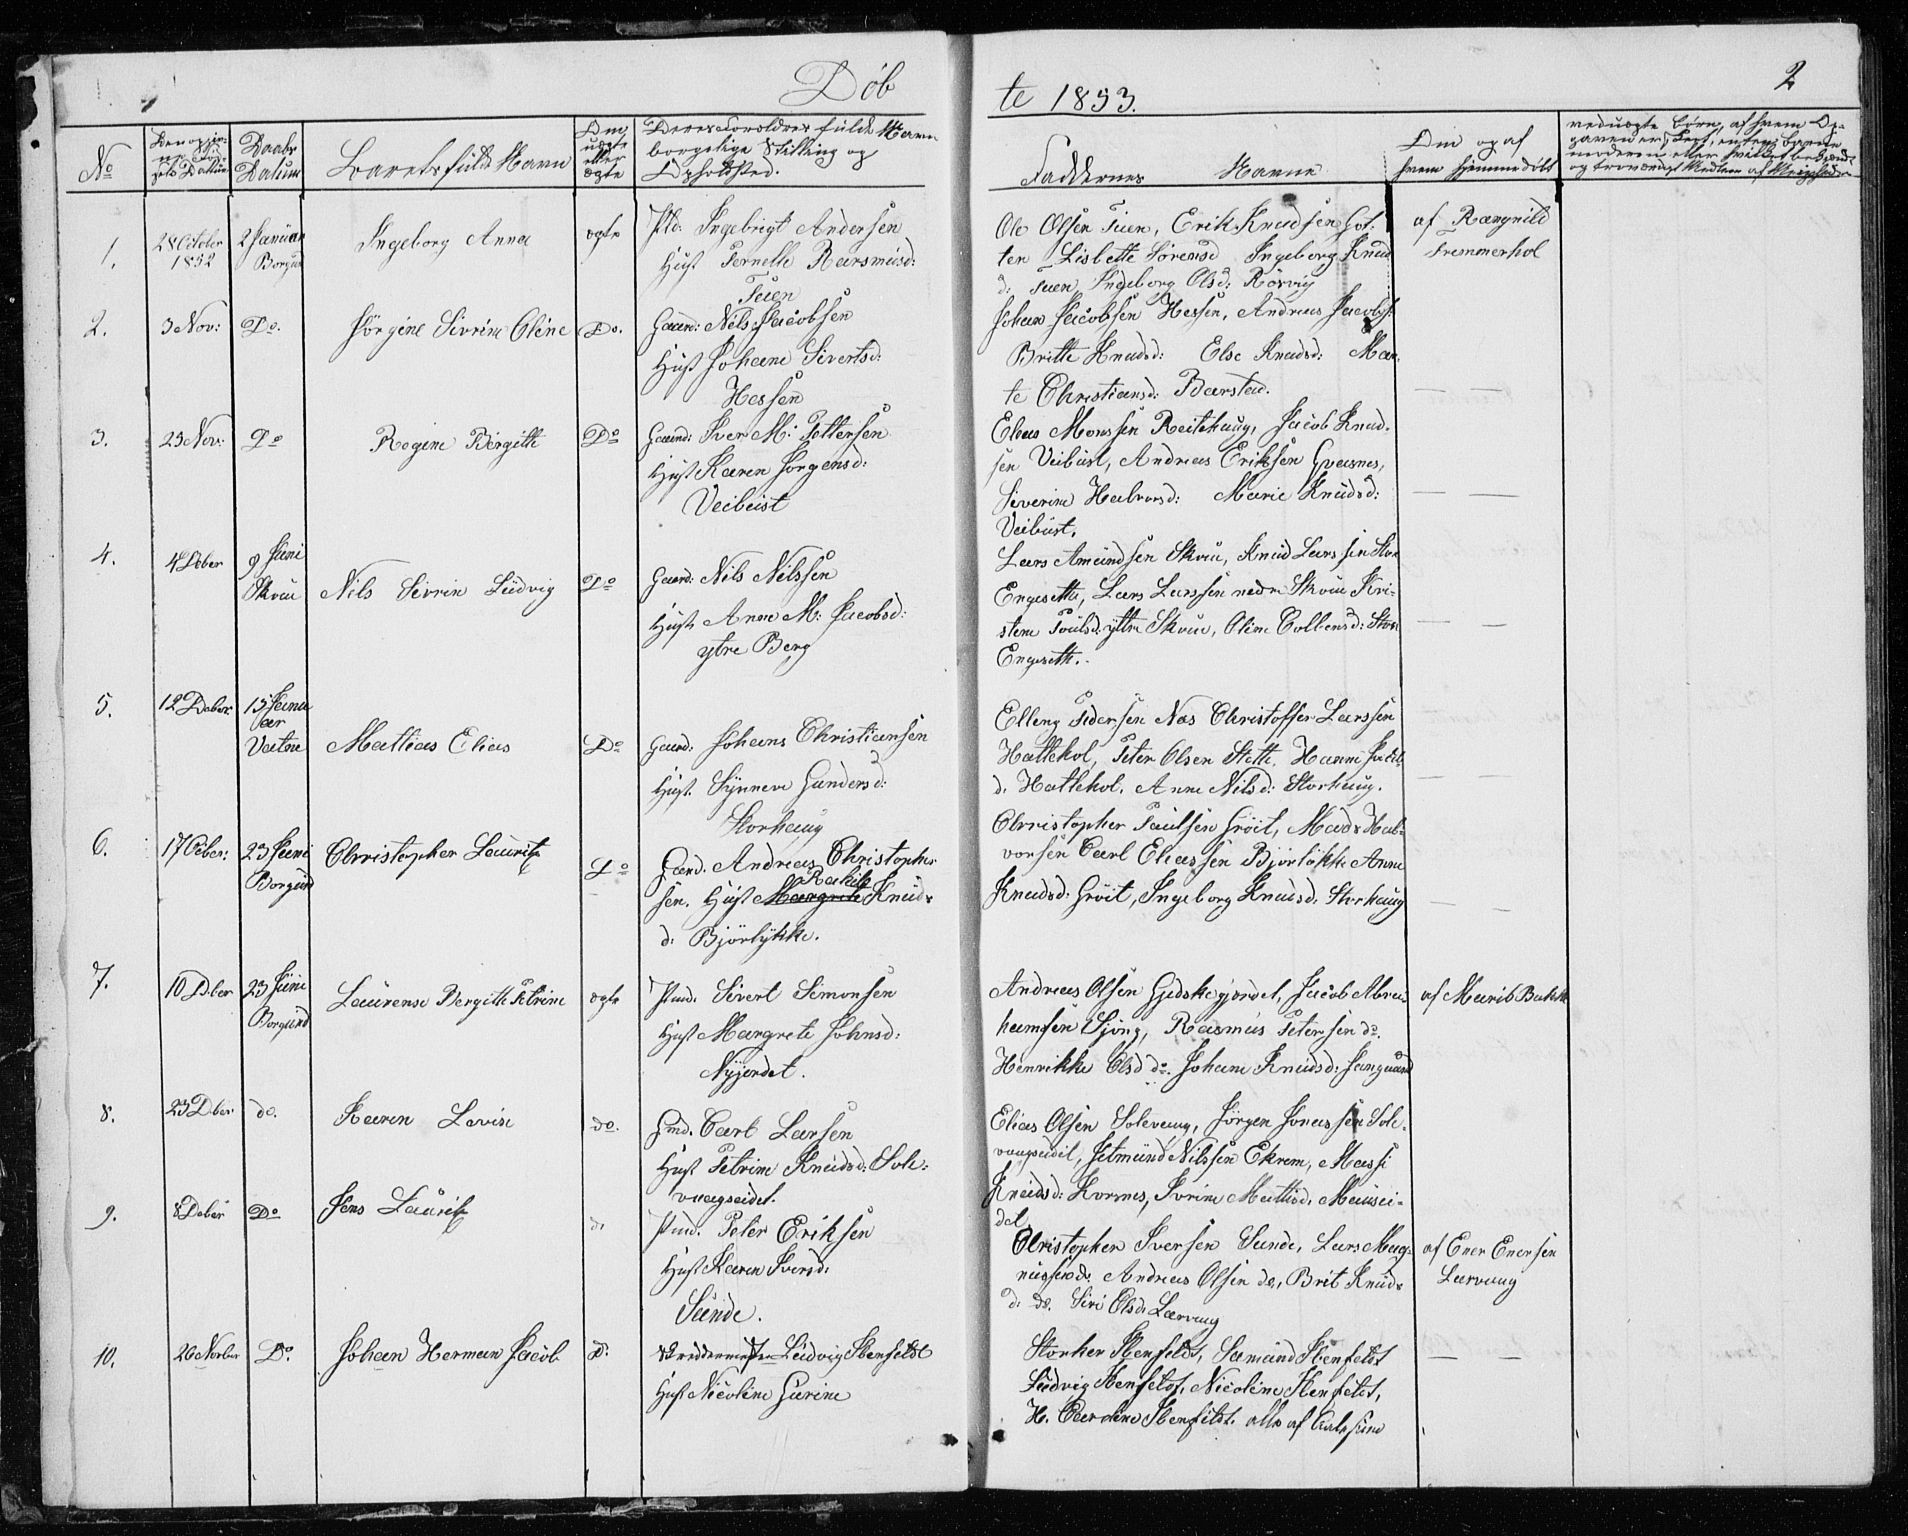 Døb
te 1853.
2
No
Daabs Datum
Barnets fulde Navn
Om uægte eller ægte
Deres Forældres fulde Navn
borgelige Stilling og
Opholdsted.
Faddernes Navne
Om og af
hvem hjemmedøbt
1.
28 October 1852
2 Januar Borgund
Ingeborg Anna
ægte
Pld: Ingebrigt Andersen
Hust Pernelle Rasmusd:
Tuen
Ole Olsen Tuen, Erik Knudsen Hof-
ten Lisbette Sørensd Ingeborg Knud
d: Tuen, Ingeborg Olsd: Rørvig
af Rangnild
2.
3 Nov:
Do.
Jørgine Sivrine Oline
Do.
Gaard: Nils Jacobsen
Hust Johane Sivertsd:
Hessen
Johan Jacobsen Hessen, Andreas Jacobs:
Britte Knudsd: Else Knudsd: Mar-
te Christiansd: Barstad.
— —
3.
23 Nov:
Do
Regine Birgitte
Do
Gaard: Iver M: Pettersen
Hust Karen Jorgensd:
Veibust
Elias Monssen Reitehaug, Jacob Knud-
sen Veibust, Andreas Eriksen Qvasnes,
Siverine Halvorsd: Marie Knudsd:
Veibust.
— —
4.
4 Dcber
9 Jani Skoue
Nils Sivrin Ludvig
Do
Gaard: Nils Nilssen
Hust Anne M: Jacobsd:
ytre Berg
Lars Amundsen Skoue, Knud Larssen Stor
Engesette, Lars Larssen nedre Skoue Kri-
stene Poulsd: yttre Skoue, Oline Colbensd: Stor
Engesette.
— —
5.
12 Dcber
15 Janu ar Vatne
Mathias Elias
Do
Gaard: Johans Christiansen
Hust. Synneve Gundersd:
Storhaug
Elleng Pedersen Næs Christoffer Larssen
Hattehol, Peter Olsen Stette. Hanne
d. Hattehol. Anne Nilsd: Storhaug.
— —
6.
17 Ocber:
23 Jani Borgund
Christopher Lauritz
Do
Gaard. Andreas Christopher
sen. Hust Margrete Rakil Knuds
d: Bjørlykke.
Christopher Paulsen Grøit, Mads Hal-
vorsen Carl Eliassen Bjørløkke Anne
Knudsd: Grøit, Ingeborg Knudsd. Storhaug
— —
7.
10 Dber
23 Jani Borgund
Laurense Bergitte Petrine
ægte
Pmd. Sivert Simonsen
Hust Margrete Johnsd:
Nyjordet.
Andreas Olsen Gjedskegjordet, Jacob Abra
hamsen Gjøng, Rasmus Petersen do.
Henrikke Olsd do. Johane Knudsd:
af Marit
8.
23 Dber
do.
Karen Lovise
do.
Gmd. Carl Larsen
Hust Petrine Knudsd: Sole-
vaagseidet.
Elias Olsen Solevaag, Jørgen Jonassen Sole-
vaagseidet, Jetmund Nilssen Ekrem, Massi
Knudsd: Korsnes, Ivrine Mathisd. Mausei-
det.
9.
8 Dcber
Do
Jens Lauritz
d.
Pmd. Peter Eriksen
Hust Karen Iversd:
Sunde.
Christopher Iversen Sunde, Lars Mag-
nussen do. Andreas Olsen do., Brit Knuds
d: do. Siri Olsd. Larvaag
af Ener Enersen
Larvaag
10.
26 Novber
Do.
Johan Herman Jacob
d.
Ludvig Stenfeldt
Hust Nicoline Gurine
Storker Stenfeldt, Samund Stenfeldt
Ludvig Stenfeldt, Nicoline Stenfeldt,
H. Caroline Stenfeldt. alle af Aalesund
— —